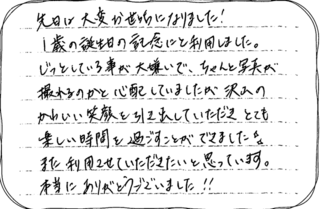 先日は大変お世話になりました!
1歳の誕生日の記念にと利用しました。
じっとしている事が大嫌いで、ちゃんと写真が
撮れるのかと心配していましたが沢山の
かわいい笑顔を引き出していただき とても
楽しい時間を過ごすことができました。
また利用させていただきたいと思っています。
本当にありがとうございました!!